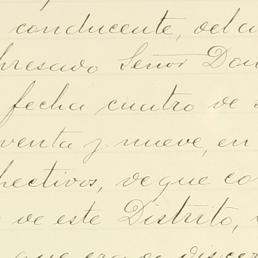 conducente, del a
presado Señor Don
fecha cuatro de
venta y nueve, en
pectivos, de que co
de este Distrito,
que era de